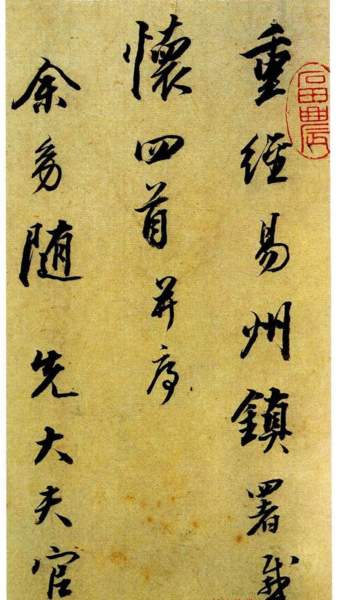 重經易州鎮署感
懷四首并序
余幼隨先大夫官